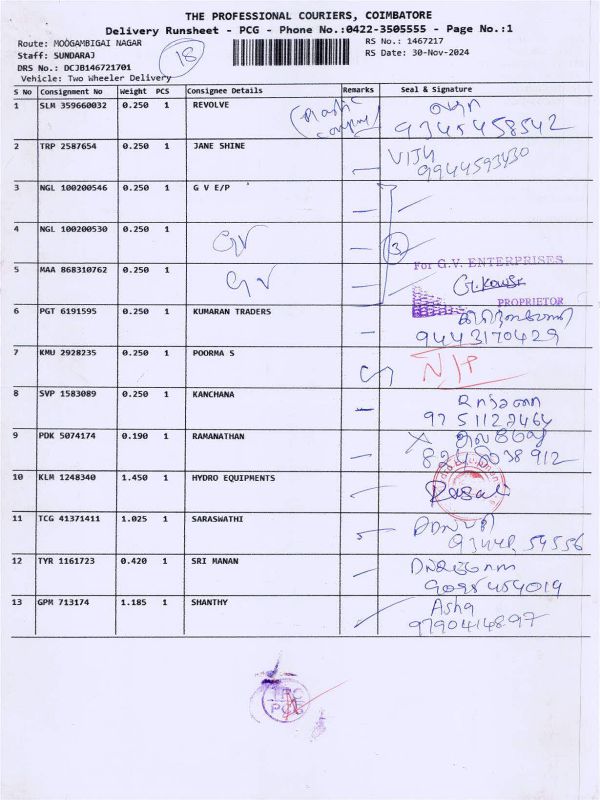 THE PROFESSIONAL COURIERS, COIMBATORE
Delivery Runsheet - PCG - Phone No.:0422-3505555 - Page No.:1
Route: MOOGAMBIGAI NAGAR
18
RS No.: 1467217
Staff: SUNDARAJ
RS Date: 30-Nov-2024
DRS No.: DCJB146721701
Vehicle: Two Wheeler Delivery
S No Consignment No Weight PCS Consignee Details Remarks Seal & Signature
1 SLM 359660032 0.250 1 REVOLVE
9345458542
2 TRP 2587654 0.250 1 JANE SHINE VIJI
9944593430
3 NGL 100200546 0.250 1 G V E/P
4 NGL 100200530 0.250 1 GV 3
For G.V. ENTERPRISES
5 MAA 868310762 0.250 1 GV
PROPRIETOR
6 PGT 6191595 0.250 1 KUMARAN TRADERS
9443170429
7 KMU 2928235 0.250 1 POORMA S N/P
8 SVP 1583089 0.250 1 KANCHANA
9751122464
9 PDK 5074174 0.190 1 RAMANATHAN
10 KLM 1248340 1.450 1 HYDRO EQUIPMENTS
11 TCG 41371411 1.025 1 SARASWATHI
12 TYR 1161723 0.420 1 SRI MANAN
13 GPM 713174 1.185 1 SHANTHY Asha
9790414897
PCG